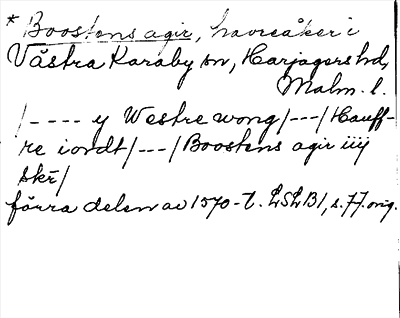 * Boostens agir, havreåker i
Västra Karaby sn, Harjagers hd,
Malm. l.
/---- y Westre wong/---/Hauff-
re iordt/---/Boostens agir iiij
skr/
förra delen av 1570-t. LSLB1, s. 77. orig.